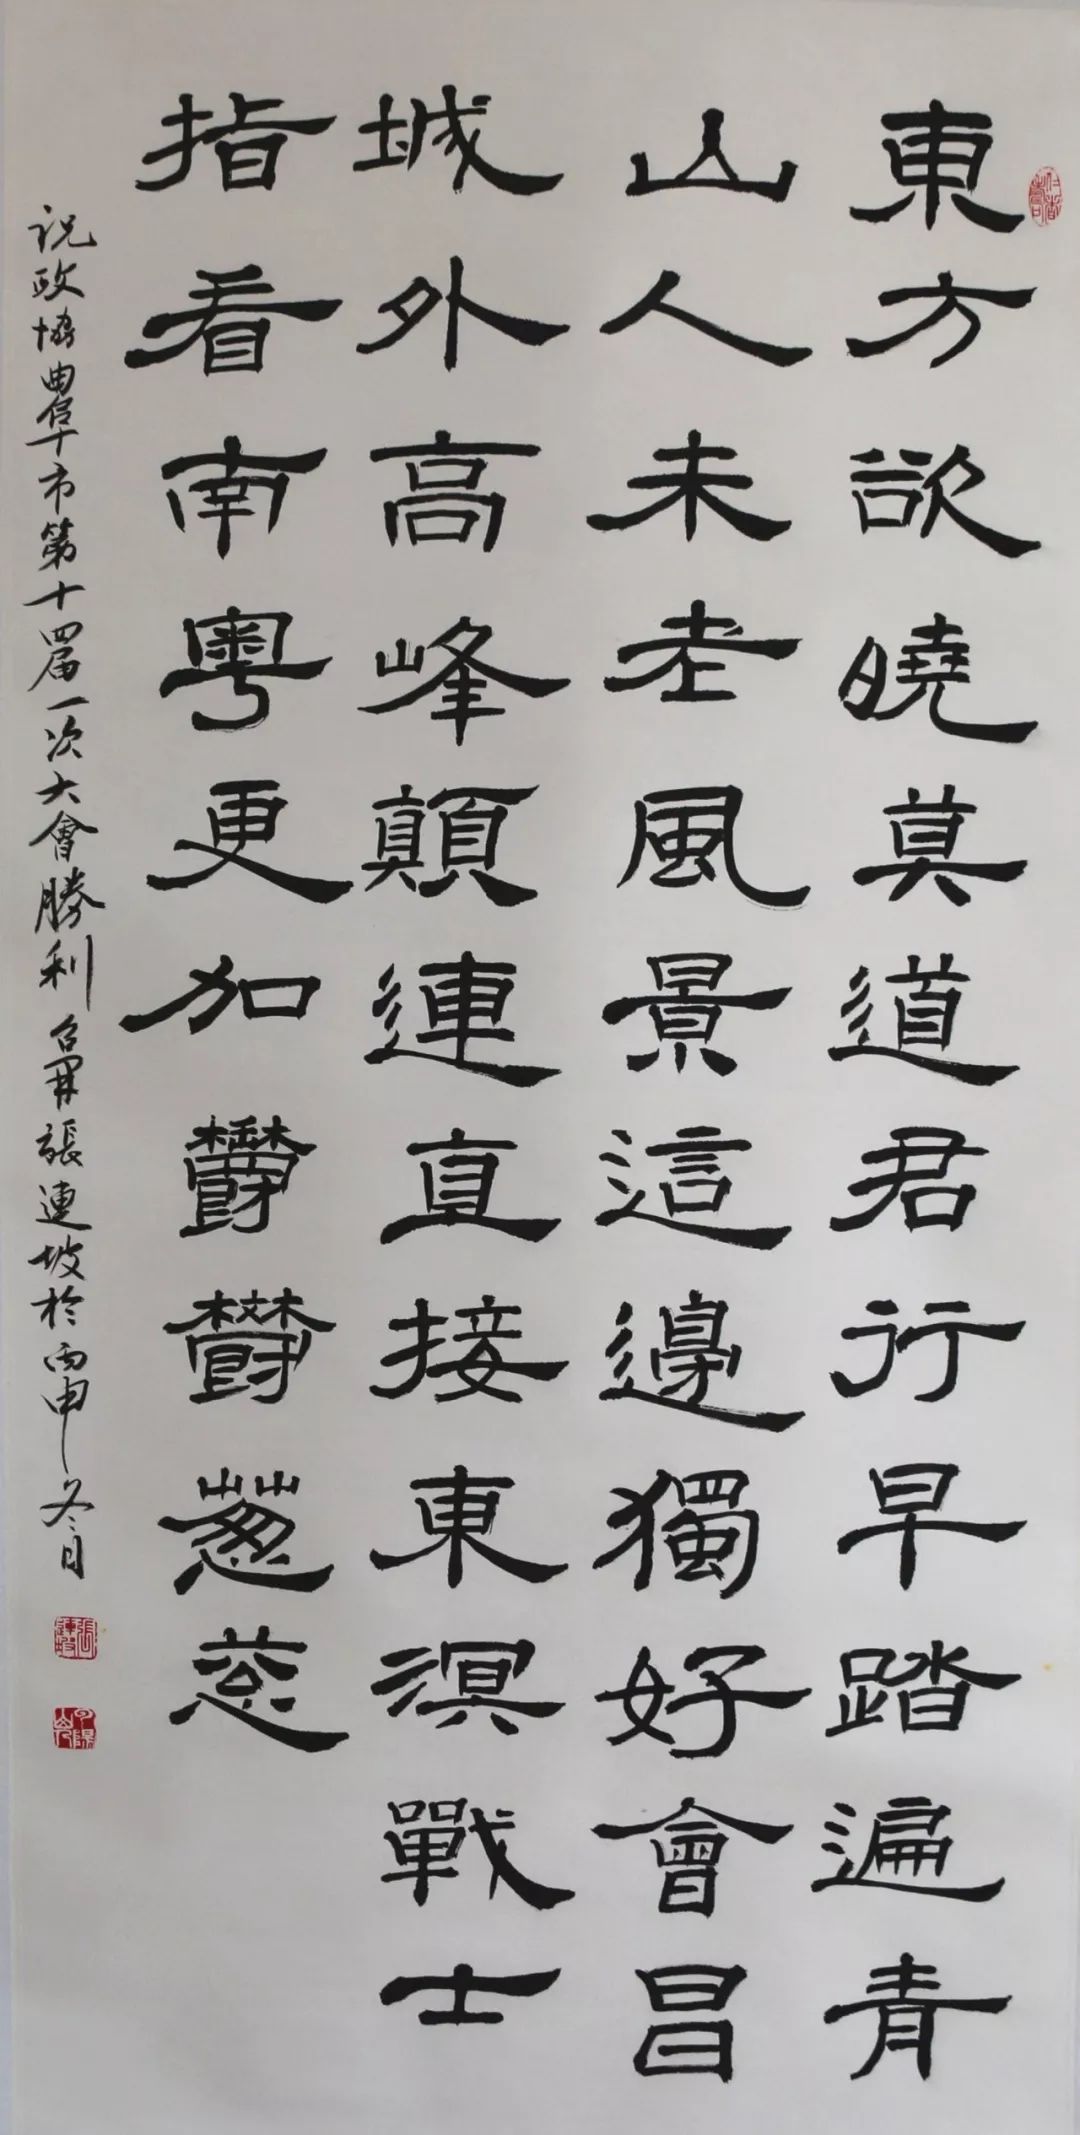 東方欲曉莫道君行早踏遍青
山人未老風景這邊獨好會昌
城外高峰顛連直接東溟戰士
指看南粵更加鬱鬱葱葱
祝政協曲阜市第十四届一次大會勝利召開張連坡於丙申冬日